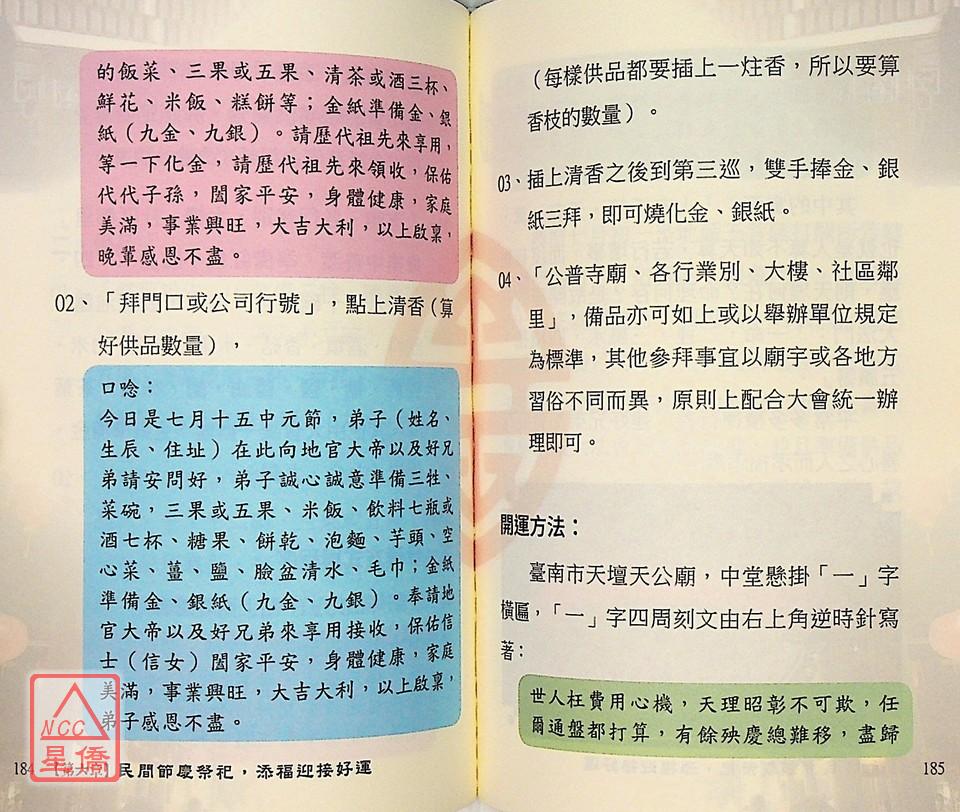 的飯菜、三果或五果、清茶或酒三杯、
鮮花、米飯、糕餅等；金紙準備金、銀
紙（九金、九銀）。請歷代祖先來享用，
等一下化金，請歷代祖先來領收，保佑
代代子孫，闔家平安，身體健康，家庭
美滿，事業興旺，大吉大利，以上啟稟，
晚輩感恩不盡。
02、「拜門口或公司行號」，點上清香（算
好供品數量），
口唸：
今日是七月十五中元節，弟子（姓名、
生辰、住址）在此向地官大帝以及好兄
弟請安問好，弟子誠心誠意準備三牲、
菜碗，三果或五果、米飯、飲料七瓶或
酒七杯、糖果、餅乾、泡麵、芋頭、空
心菜、薑、鹽、臉盆清水、毛巾；金紙
準備金、銀紙（九金、九銀）。奉請地
官大帝以及好兄弟來享用接收，保佑信
士（信女）闔家平安，身體健康，家庭
美滿，事業興旺，大吉大利，以上啟稟，
弟子感恩不盡。
NCC
星僑
184 【第六克】民間節慶祭祀，添福迎接好運
（每樣供品都要插上一炷香，所以要算
香枝的數量）。
03、插上清香之後到第三巡，雙手捧金、銀
紙三拜，即可燒化金、銀紙。
04、「公普寺廟、各行業別、大樓、社區鄰
里」，備品亦可如上或以舉辦單位規定
為標準，其他參拜事宜以廟宇或各地方
習俗不同而異，原則上配合大會統一辦
理即可。
開運方法：
臺南市天壇天公廟，中堂懸掛「一」字
橫匾，「一」字四周刻文由右上角逆時針寫
著：
世人枉費用心機，天理昭彰不可欺，任
爾通盤都打算，有餘殃慶總難移，盡歸
185